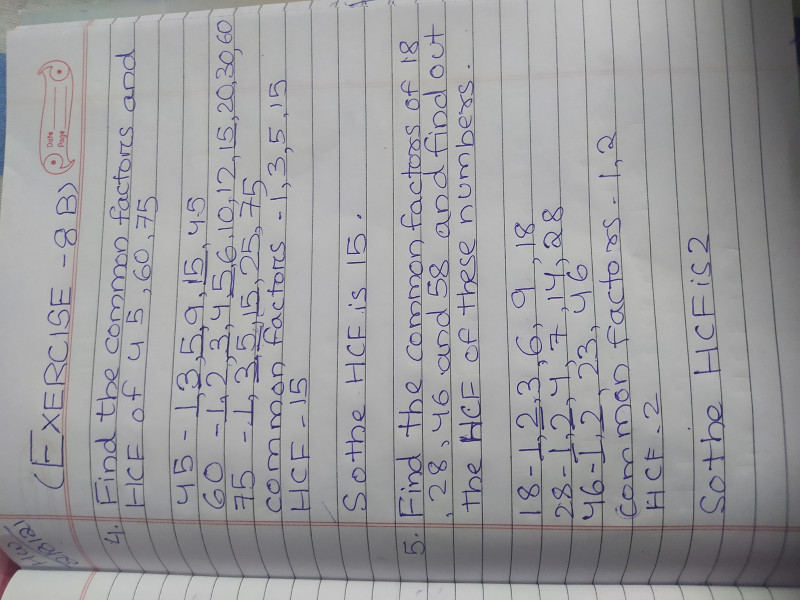 H.W
(EXERCISE - 8B)
Date
Page
4. Find the common factors and
HCF of 45, 60, 75
45 - 1, 3, 5, 9, 15, 45
60 - 1, 2, 3, 4, 5, 6, 10, 12, 15, 20, 30, 60
75 - 1, 3, 5, 15, 25, 75
common factors - 1, 3, 5, 15
HCF - 15
So the HCF is 15.
5. Find the common factors of 18
, 28, 46 and 58 and find out
the HCF of these numbers.
18 - 1, 2, 3, 6, 9, 18
28 - 1, 2, 4, 7, 14, 28
46 - 1, 2, 23, 46
common factors - 1, 2
HCF - 2
So the HCF is 2